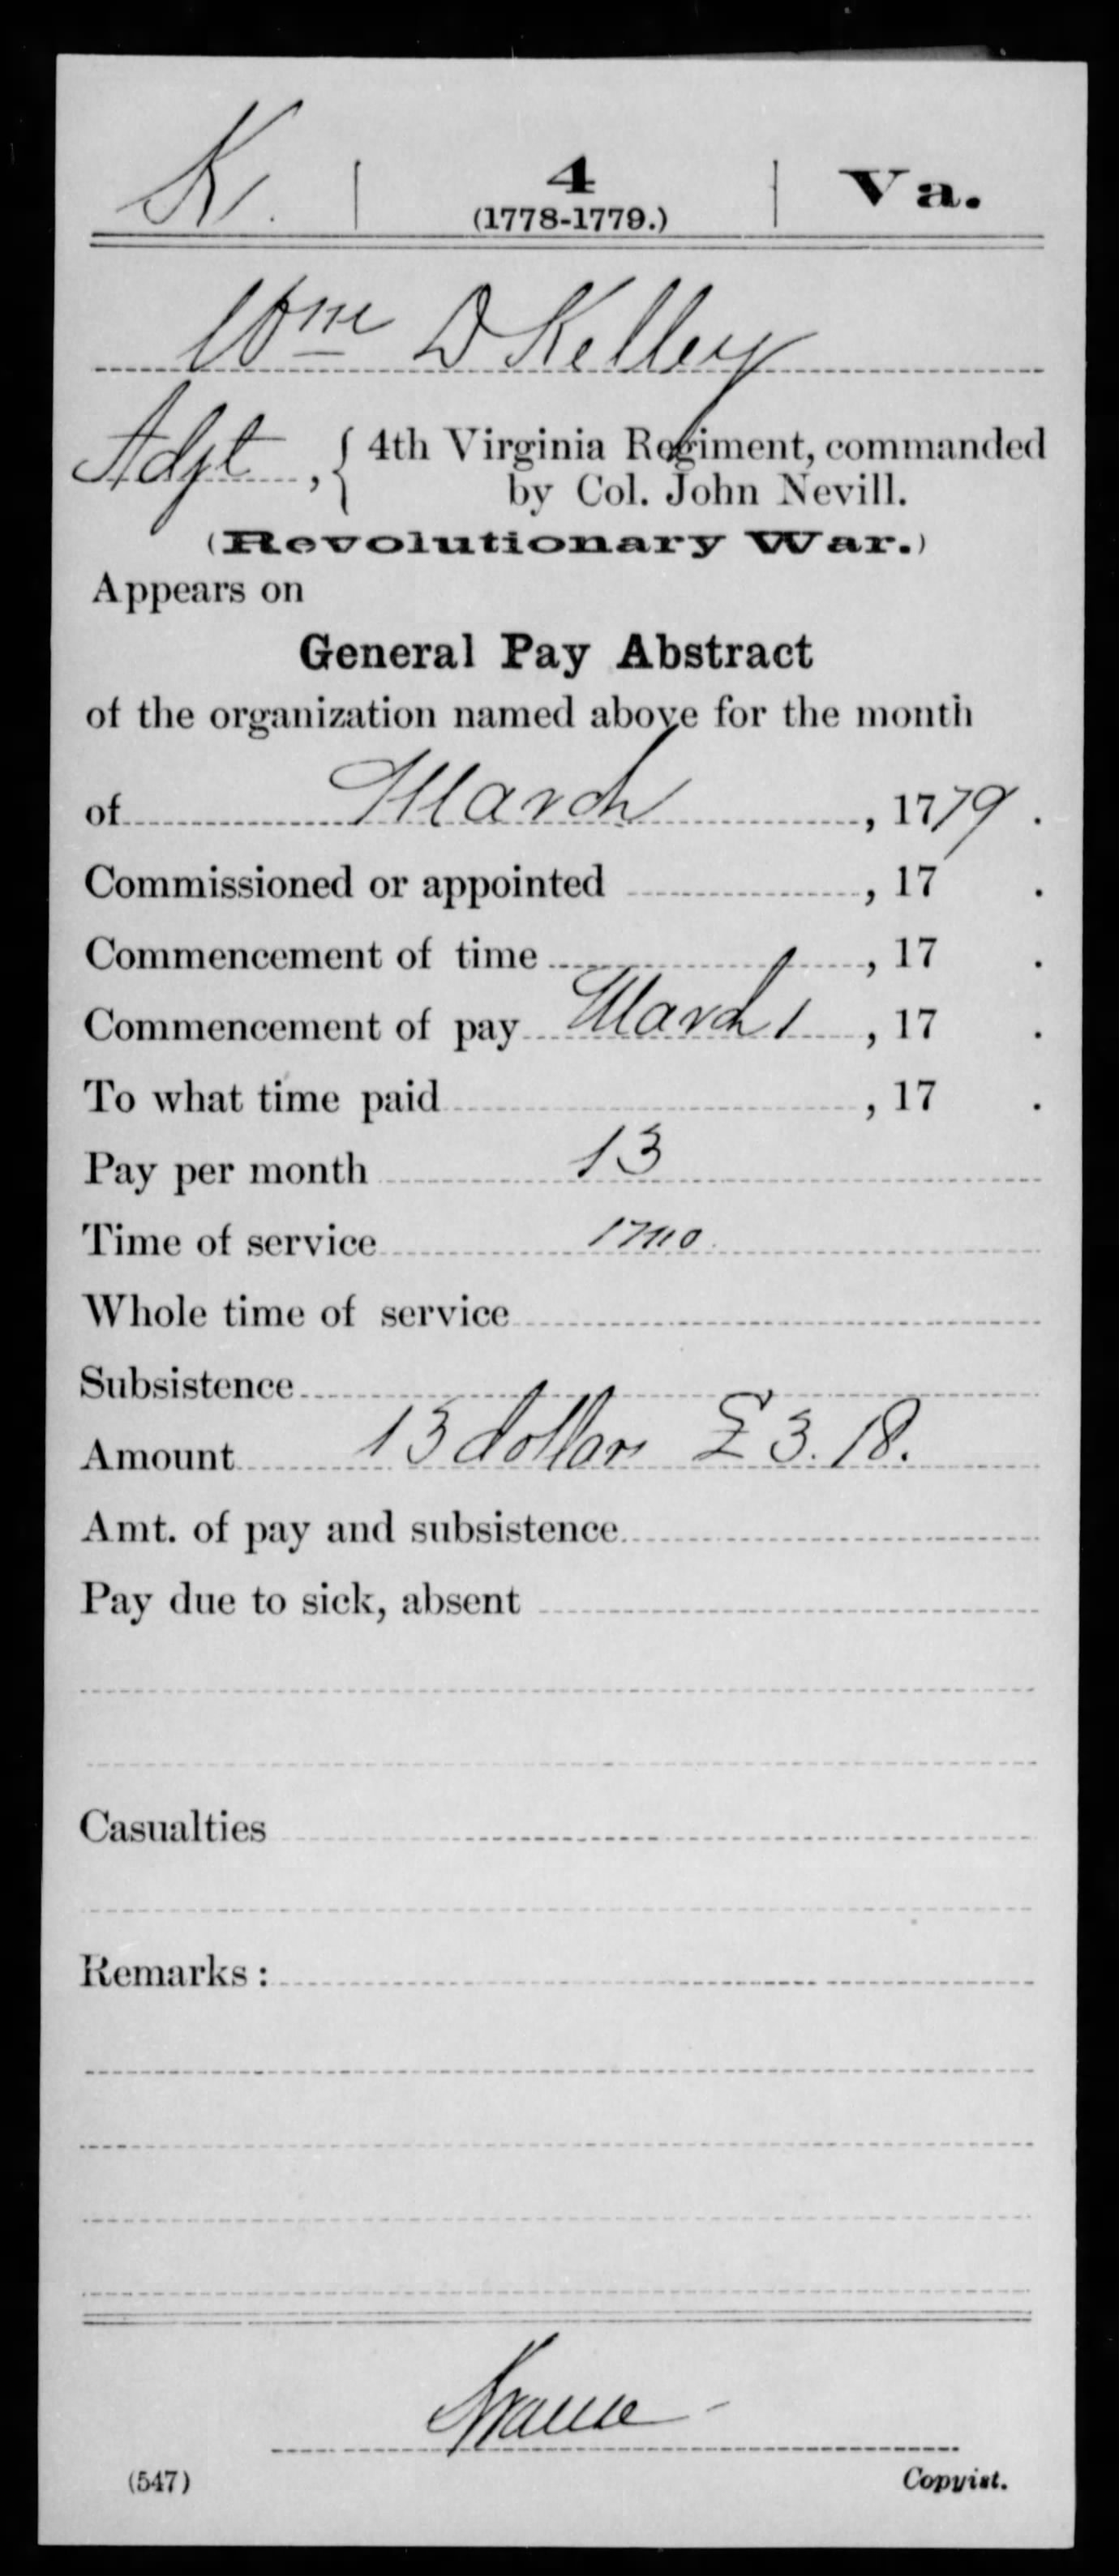 K. | 4 | Va.
(1778-1779.)
Wm D Kelley
Adjt, { 4th Virginia Regiment, commanded
by Col. John Nevill.
(Revolutionary War.)
Appears on
General Pay Abstract
of the organization named above for the month
of March, 1779.
Commissioned or appointed , 17 .
Commencement of time , 17 .
Commencement of pay March 1, 17 .
To what time paid , 17 .
Pay per month 13
Time of service 1 mo
Whole time of service
Subsistence
Amount 13 dollars £3.18.
Amt. of pay and subsistence
Pay due to sick, absent
Casualties
Remarks :
(547) Copyist.